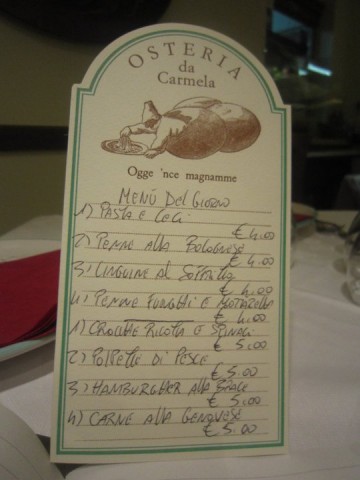 OSTERIA
da
Carmela
Ogge 'nce magnamme
MENÙ DEL GIORNO
1) PASTA E CECI
€ 4.00
2) PENNE ALLA BOLOGNESE
€ 4.00
3) LINGUINE AL
€ 4.00
4) PENNE FUNGHI E MOZZARELLA
€ 4.00
1) CROCCHE RICOTTA E SPINACI
€ 5.00
2) POLPETTE DI PESCE
€ 5.00
3) HAMBURGHER ALLA BRACE
€ 5.00
4) CARNE ALLA GENOVESE
€ 5.00